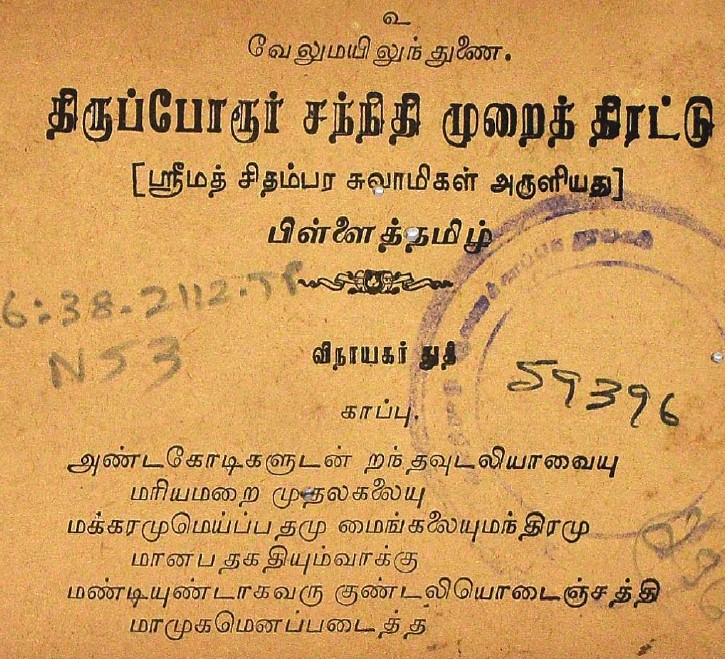 உ
வேலுமயிலுந்துணை.
திருப்போரூர் சந்நிதி முறைத் திரட்டு
[ஸ்ரீமத் சிதம்பர சுவாமிகள் அருளியது]
பிள்ளைத்தமிழ்
6:38-2112.TP
N53
விநாயகர் துதி
59396
காப்பு.
அண்டகோடிகளுடன் றந்தவுடலியாவையு
மரியமறை முதலகலையு
மக்கரமுமெய்ப்பதமு மைங்கலையுமந்திரமு
மானபதகதியும்வாக்கு
மண்டியுண்டாகவரு குண்டலியொடைஞ்சத்தி
மாமுகமெனப்படைத்த